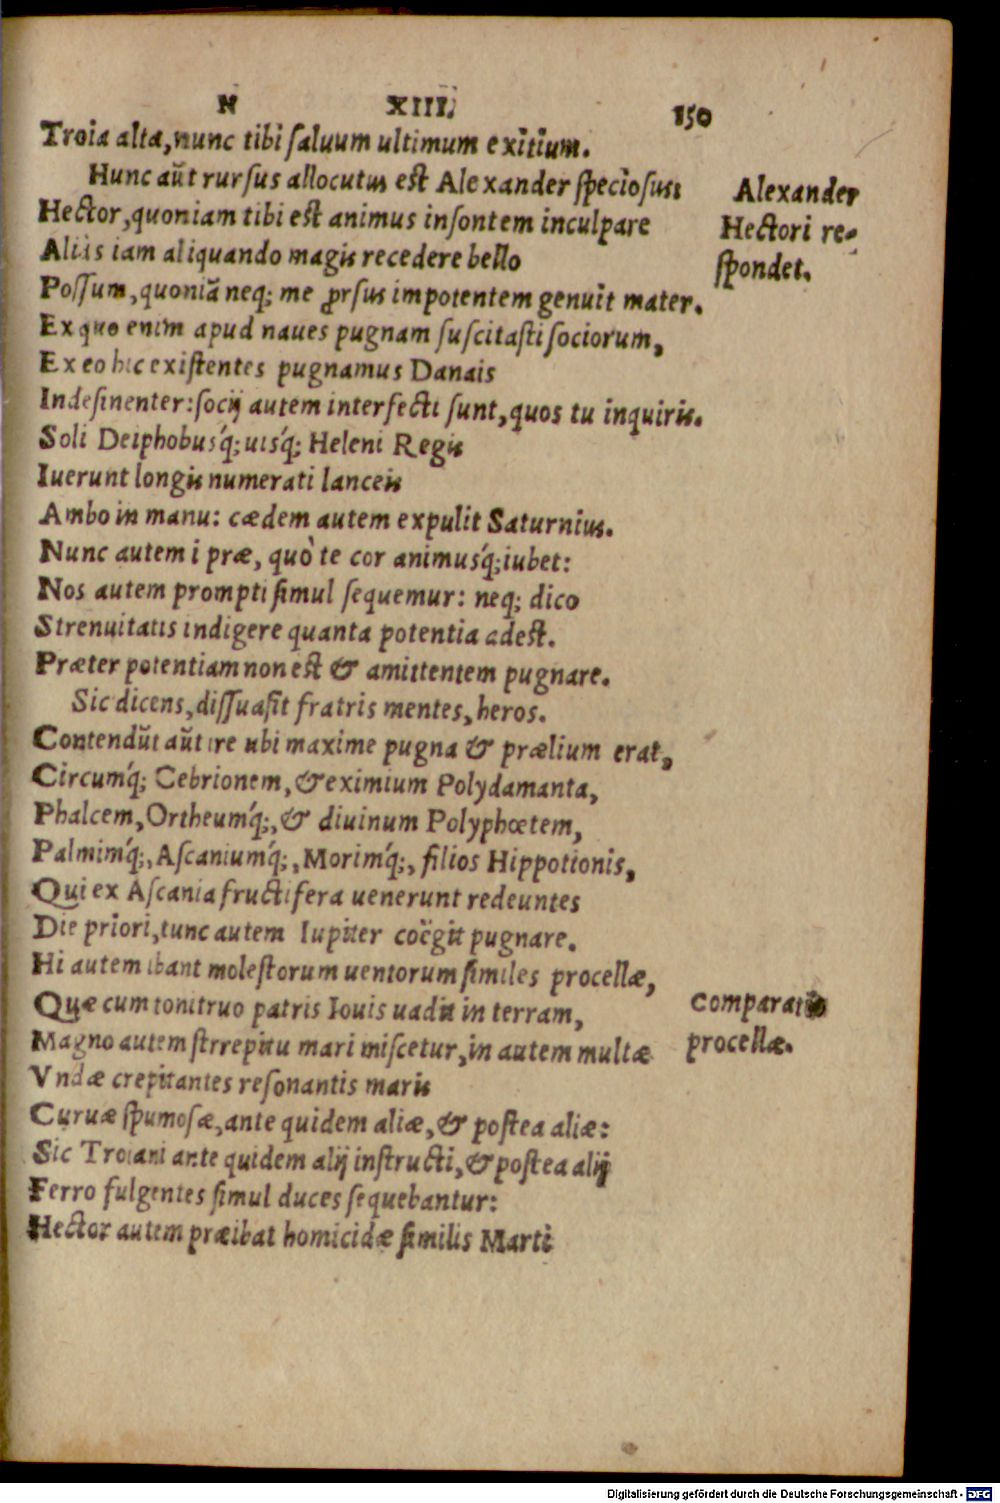 N XIII. 150
Troia alta, nunc tibi ſaluum ultimum exitium.
Hunc aūt rurſus allocutus eſt Alexander ſpecioſus:
Alexander
Hector, quoniam tibi eſt animus inſontem inculpare
Hectori re-
Aliàs iam aliquando magis recedere bello
ſpondet.
Poſſum, quoniā neq; me ꝓrſus impotentem genuit mater.
Ex quo enim apud naues pugnam ſuſcitaſti ſociorum,
Ex eo hic exiſtentes pugnamus Danais
Indeſinenter: ſocij autem interfecti ſunt, quos tu inquiris.
Soli Deiphobusq́; uisq́; Heleni Regis
Iuerunt longis numerati lanceis
Ambo in manu: cædem autem expulit Saturnius.
Nunc autem i præ, quò te cor animusq́; iubet:
Nos autem prompti ſimul ſequemur: neq; dico
Strenuitatis indigere quanta potentia adeſt.
Præter potentiam non eſt & amittentem pugnare.
Sic dicens, diſſuaſit fratris mentes, heros.
Contendūt aūt ire ubi maxime pugna & prælium erat,
Circumq́; Cebrionem, & eximium Polydamanta,
Phalcem, Ortheumq́;, & diuinum Polyphœtem,
Palmimq́;, Aſcaniumq́;, Morimq́;, filios Hippotionis,
Qui ex Aſcania fructifera uenerunt redeuntes
Die priori, tunc autem Iupiter coëgit pugnare.
Hi autem ibant moleſtorum uentorum ſimiles procellæ,
Quæ cum tonitruo patris Iouis uadit in terram,
Comparatio
Magno autem ſtrrepitu mari miſcetur, in autem multæ
procellæ.
Vndæ crepitantes reſonantis maris
Curuæ ſpumoſæ, ante quidem aliæ, & poſtea aliæ:
Sic Troiani ante quidem alij inſtructi, & poſtea alij
Ferro fulgentes ſimul duces ſequebantur:
Hector autem præibat homicidæ ſimilis Marti
Digitalisierung gefördert durch die Deutsche Forschungsgemeinschaft - DFG